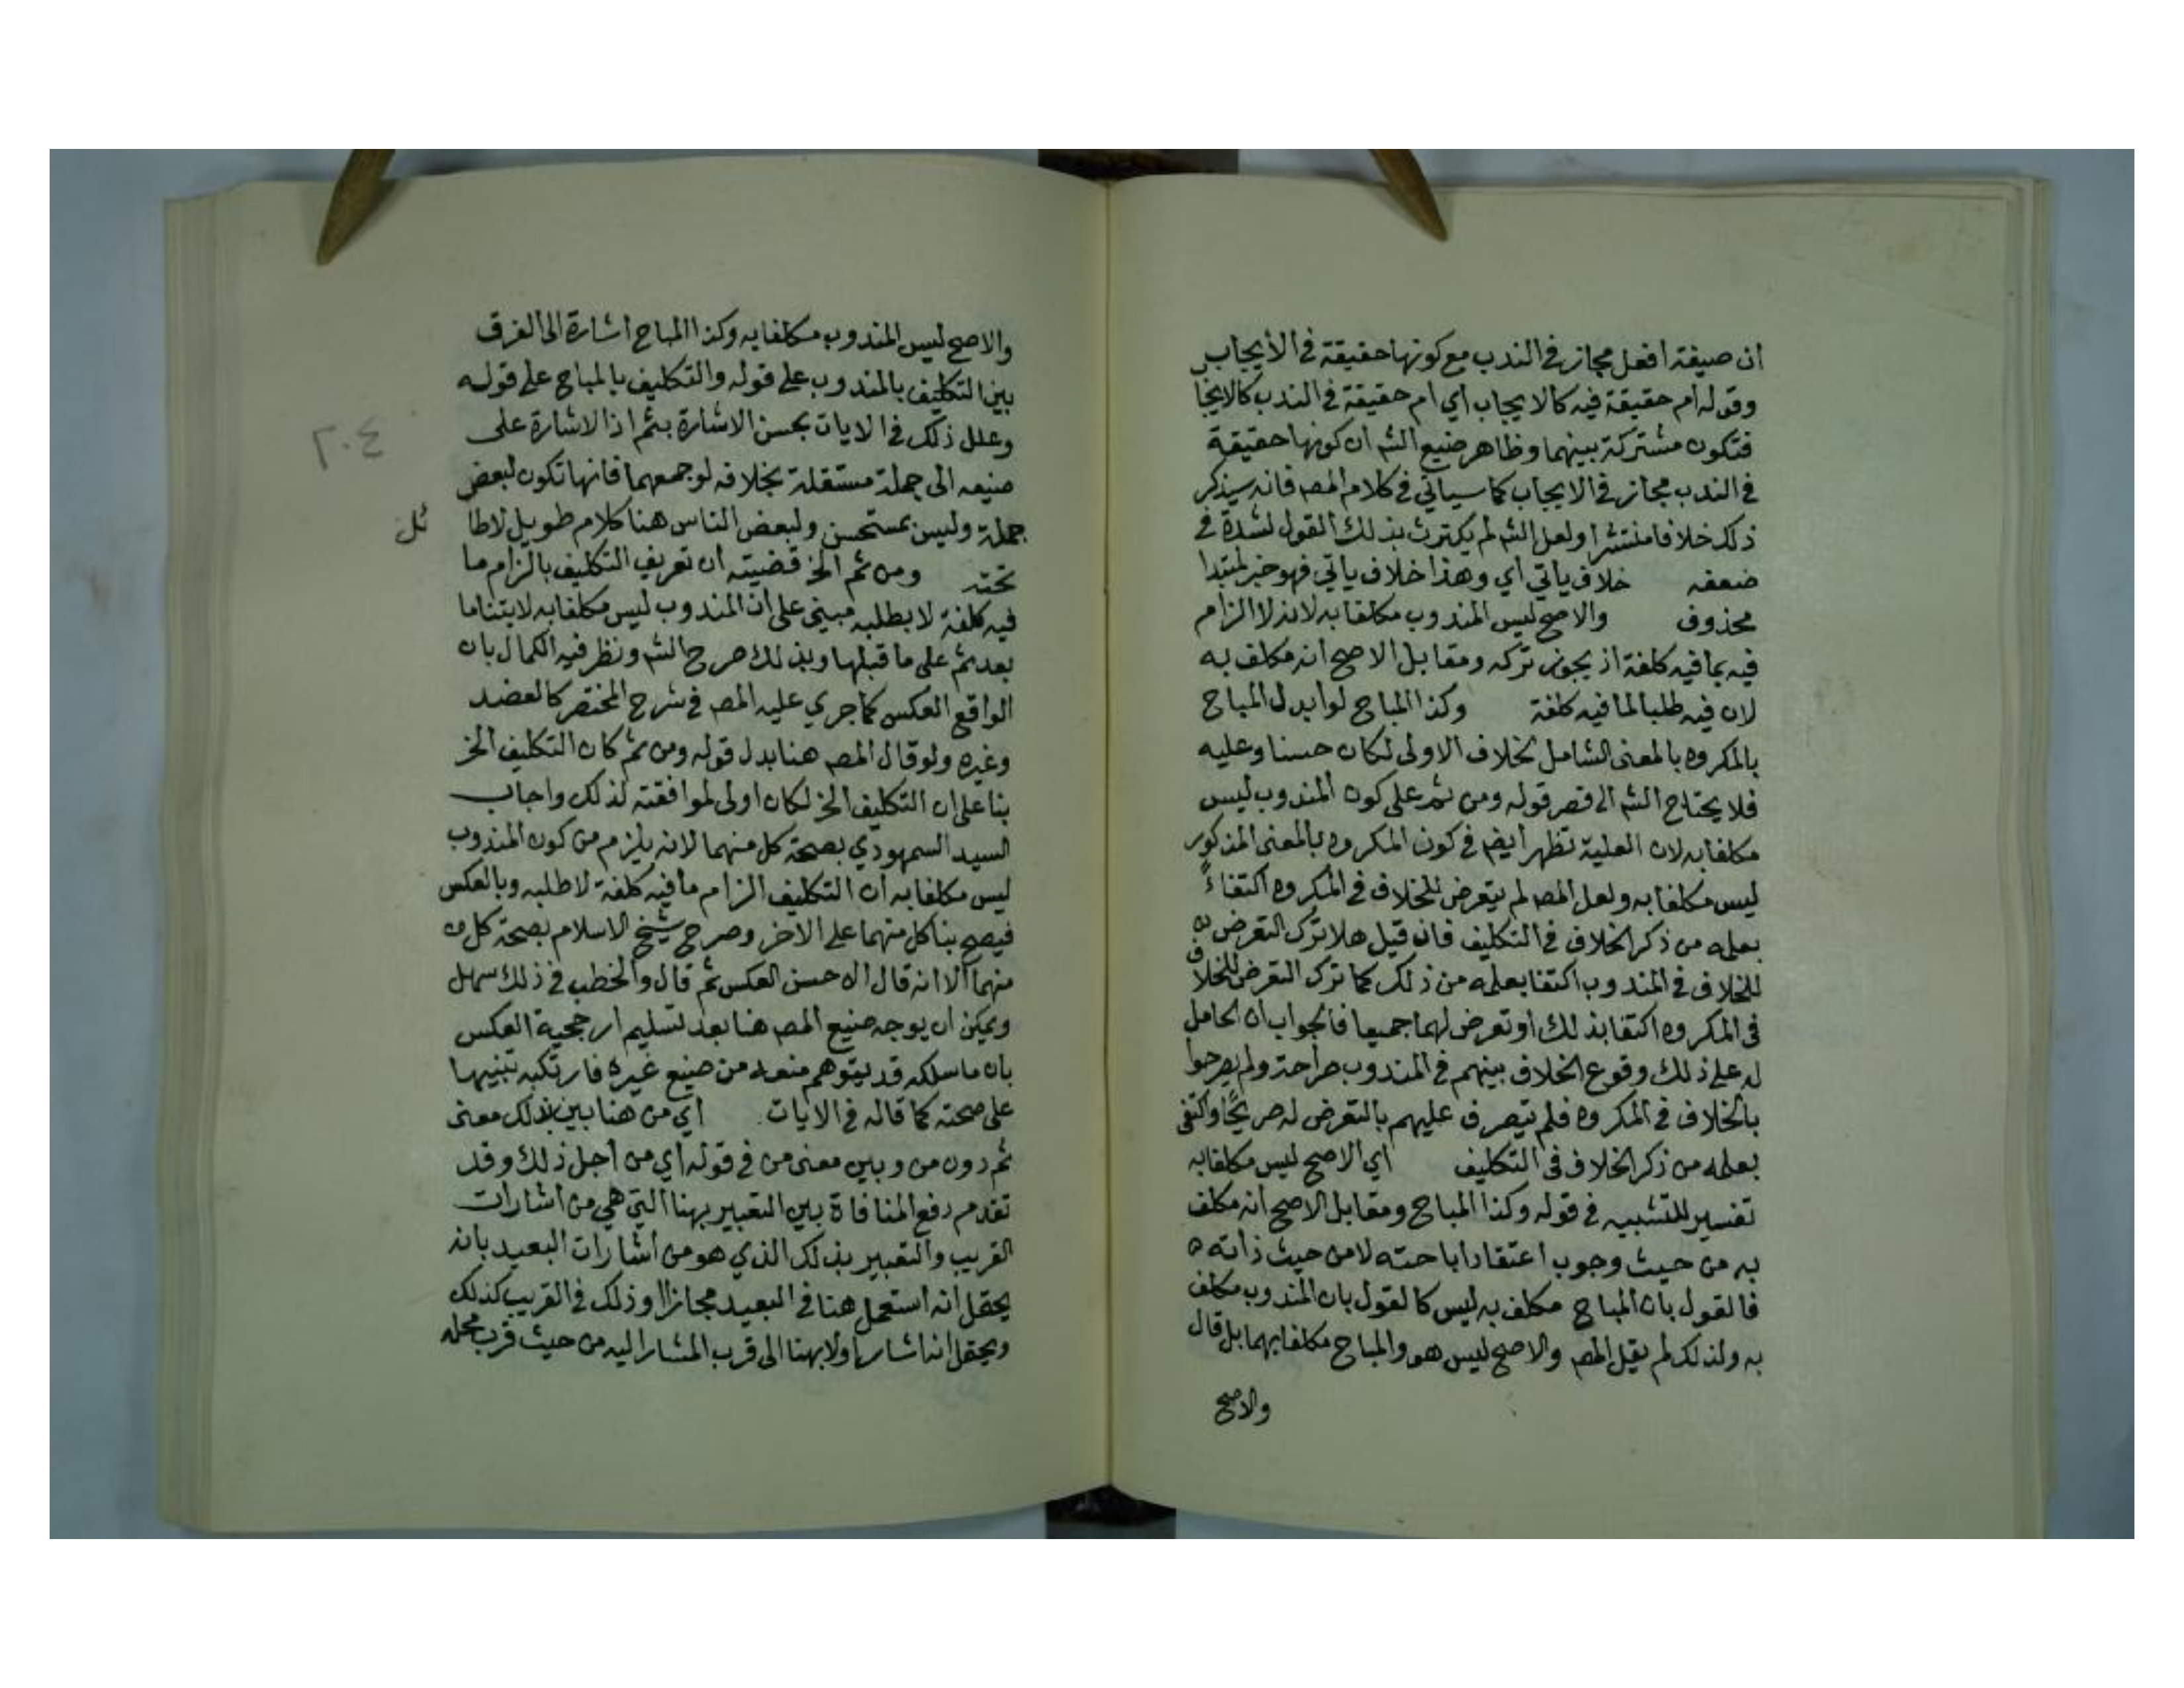 ان صيغة افعل مجاز في الندب مع كونها حقيقة في الأيجاب
وقوله ام حقيقة فيه كالايجاب أي ام حقيقة في الندب كالايجا
فتكون مشتركة بينهما وظاهر صنيع الشم ان كونها حقيقة
في الندب مجاز في الايجاب كما سياتي في كلام المصـ فانه سيذكر
ذلك خلافا منتشرا ولعل الشم لم يكترث بذلك القول لشدة في
ضعفه خلاف ياتي أي وهذا خلاف ياتي فهو خبر لمبتدا
محذوف والاصح ليس المندوب مكلفا به لانه لا الزام
فيه بما فيه كلفة اذ يجوز تركه ومقابل الاصح انه مكلف به
لان فيه طلبا لما فيه كلفة وكذا المباح لو ابدل المباح
بالمكروه بالمعنى الشامل لخلاف الاولى لكان حسنا وعليه
فلا يحتاج الشم الى قصر قوله ومن ثم على كون المندوب ليس
مكلفا به لان العلية تظهر ايضـ في كون المكروه بالمعنى المذكور
ليس مكلفا به ولعل المصـ لم يتعرض للخلاف في المكروه اكتفاءً
بعلمه من ذكر الخلاف في التكليف فان قيل هلا ترك التعرض
للخلاف في المندوب اكتفا بعلمه من ذلك كما ترك التعرض للخلاف
في المكروه اكتفا بذلك او تعرض لهما جميعا فالجواب ان الحامل
له على ذلك وقوع الخلاف بينهم في المندوب صراحة ولم يصرحوا
بالخلاف في المكروه فلم يتصرف عليهم بالتعرض له صريحًا واكتفى
بعلمه من ذكر الخلاف في التكليف أي الاصح ليس مكلفا به
تفسير للتشبيه في قوله وكذا المباح ومقابل الاصح انه مكلف
به من حيث وجوب اعتقاد اباحته لا من حيث ذاته ه
فالقول بان المباح مكلف به ليس كالقول بان المندوب مكلف
به ولذلك لم يقل المصـ والاصح ليس هو والمباح مكلفا بهما بل قال
والاصح
والاصح ليس المندوب مكلفا به وكذا المباح اشارة الى الفرق
بين التكليف بالمندوب على قوله والتكليف بالمباح على قوله
وعلل ذلك في الايات بحسن الاشارة بثم اذ الاشارة على
٢٠٤
صنيعه الى جملة مستقلة بخلافه لو جمعهما فانها تكون لبعض
جملة وليس بمستحسن ولبعض الناس هنا كلام طويل لا طا ئل
تحته ومن ثم الخ قضيته ان تعريف التكليف بالزام ما
فيه كلفة لا بطلبه مبني على ان المندوب ليس مكلفا به لابتنا ما
بعد ثم على ما قبلها وبذلك صرح الشم ونظر فيه الكمال بان
الواقع العكس كما جري عليه المصـ في شرح المختصر كالعضد
وغيره ولو قال المصـ هنا بدل قوله ومن ثم كان التكليف الخ
بنا على ان التكليف الخ لكان اولى لموافقته لذلك واجاب
السيد السمهودي بصحة كل منهما لانه يلزم من كون المندوب
ليس مكلفا به ان التكليف الزام ما فيه كلفة لا طلبه وبالعكس
فيصح بنا كل منهما على الاخر وصرح شيخ الاسلام بصحة كل
منهما الا انه قال ان حسن العكس ثم قال والخطب في ذلك سهل
ويمكن ان يوجه صنيع المصـ هنا بعد تسليم ارجحية العكس
بان ما سلكه قد يتوهم منعه من صنيع غيره فارتكبه تنبيها
على صحته كما قاله في الايات أي من هنا بين بذلك معنى
ثم دون من وبين معنى من في قوله أي من أجل ذلك وقد
تقدم دفع المنافاة بين التعبير بهنا التي هي من اشارات
القريب والتعبير بذلك الذي هو من أشارات البعيد بانه
يحتمل انه استعمل هنا في البعيد مجازا او ذلك في القريب كذلك
ويحتمل انه اشار اولا بهنا الى قرب المشار اليه من حيث قرب محله